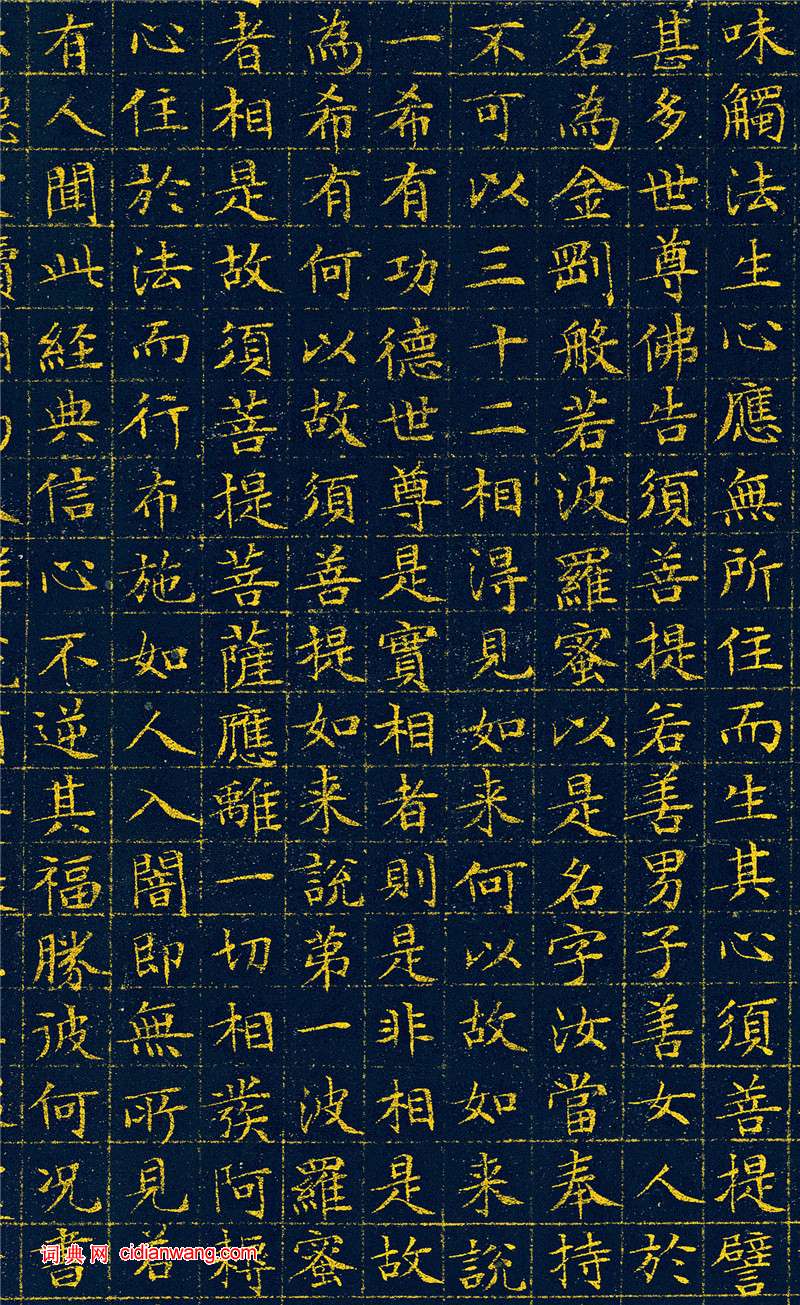 味觸法生心應無所住而生其心須菩提譬
甚多世尊佛告須善提若善男子善女人於
名為金剛般若波羅蜜以是名字汝當奉持
不可以三十二相得見如来何以故如来說
一希有功德世尊是實相者則是非相是故
為希有何以故須善提如来說第一波羅蜜
者相是故須菩提菩薩應離一切相發阿耨
心住於法而行布施如人入闇即無所見若
有人聞此経典信心不逆其福勝彼何況書
词典网 cidianwang.com